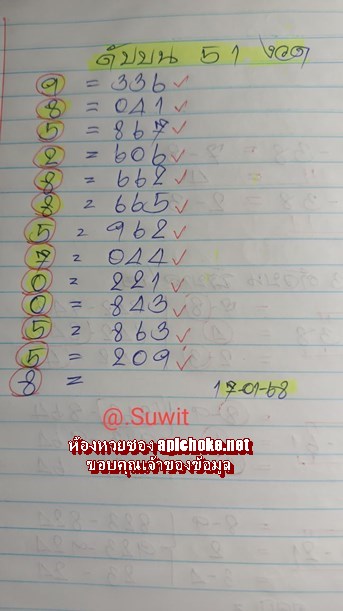 ดับบน 51 งวด
9 = 336 ✓
8 = 041 ✓
5 = 867 ✓
2 = 606 ✓
8 = 662 ✓
8 = 665 ✓
5 = 962 ✓
7 = 044 ✓
0 = 221 ✓
0 = 843 ✓
5 = 863 ✓
5 = 209 ✓
8 =
17-01-68
@.Suwit
ห้องหวยซอง apichoke.net
ขอบคุณเจ้าของข้อมูล